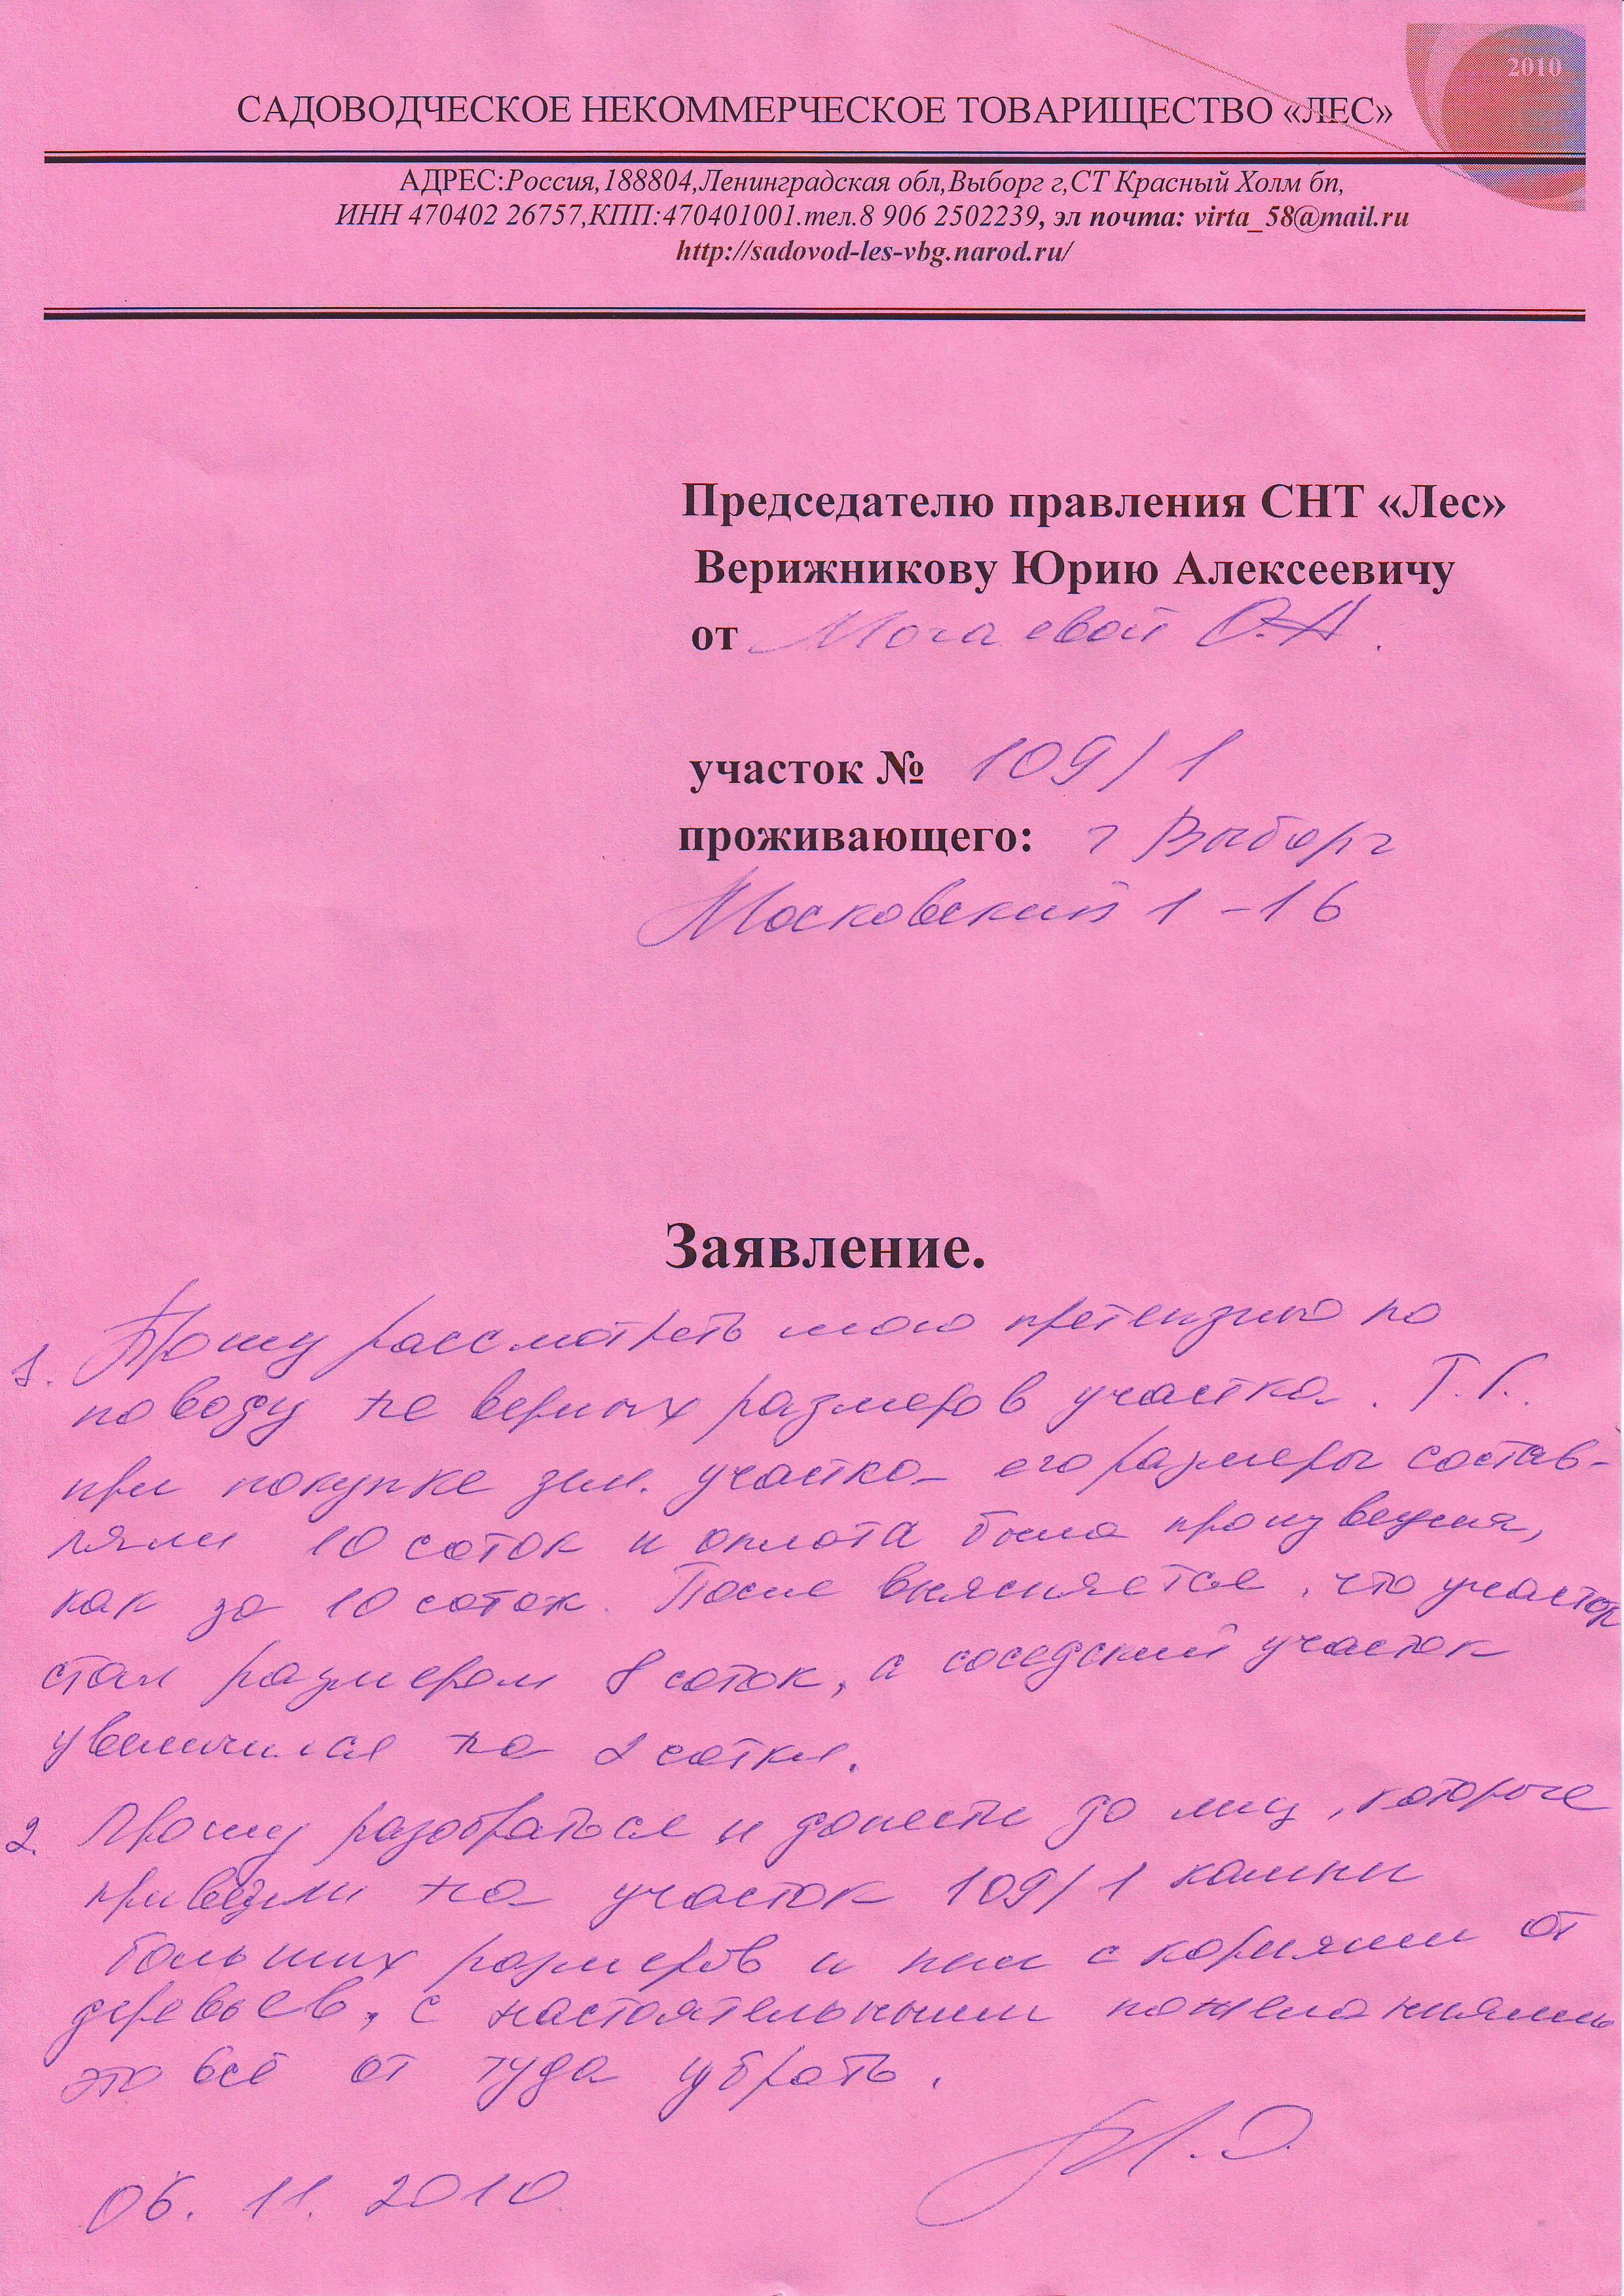 2010
САДОВОДЧЕСКОЕ НЕКОММЕРЧЕСКОЕ ТОВАРИЩЕСТВО «ЛЕС»
АДРЕС:Россия,188804,Ленинградская обл,Выборг г,СТ Красный Холм бп,
ИНН 470402 26757,КПП:470401001.тел.8 906 2502239, эл почта: virta_58@mail.ru
http://sadovod-les-vbg.narod.ru/
Председателю правления СНТ «Лес»
Верижникову Юрию Алексеевичу
от О.А.
участок № 109/1
проживающего: г Выборг
Московский 1-16
Заявление.
1. Прошу рассмотреть мою претензию по
поводу не верных размеров участка. Т.К.
при покупке зем. участка его размеры состав-
ляли 10 соток и оплата была произведена,
как за 10 соток. После выясняется, что участок
стал размером 8 соток, а соседский участок
увеличился на 2 сотки.
2. Прошу разобраться и донести до лиц, которые
привезли на участок 109/1 камни
больших размеров и пни с корнями от
деревьев, с настоятельными пожеланиями
это всё от туда убрать.
06.11.2010